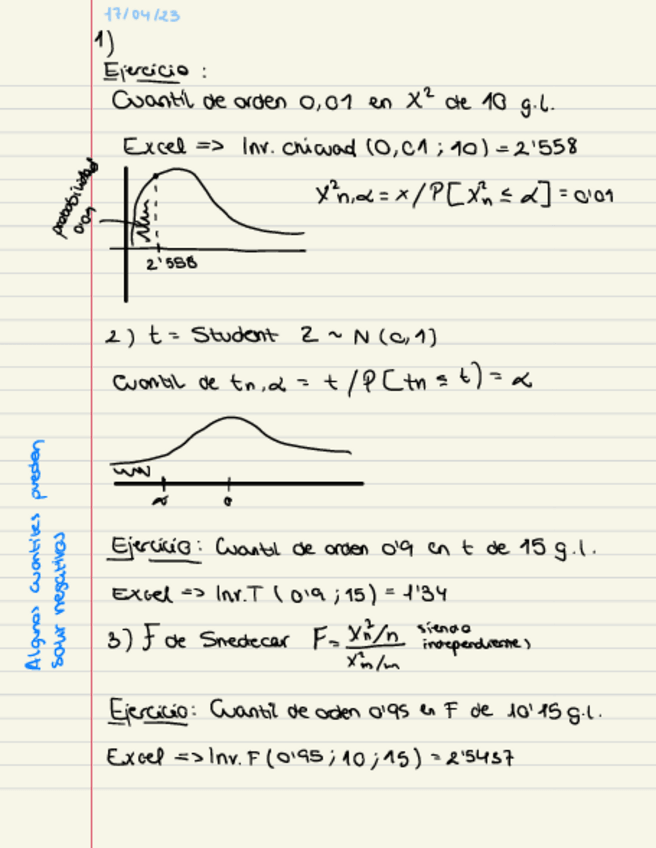 17/04/23
1)
Ejercicio :
Cuantil de orden 0,01 en X² de 10 g.l.
Excel => Inv. chicuad (0,01 ; 10) = 2'558
probabilidad 0'01
X²n,α = x / P[X²n ≤ α] = 0'01
2'558
2) t = Student Z ~ N (0,1)
Cuantil de tn,α = t / P[tn ≤ t) = α
α 0
Algunos cuantiles pueden salir negativos
Ejercicio: Cuantil de orden 0'9 en t de 15 g.l.
Excel => Inv.T (0'9 ; 15) = 1'34
3) F de Snedecar F = X²n/n / X²m/m siendo independientes
Ejercicio: Cuantil de oden 0'95 en F de 10'15 g.l.
Excel => Inv. F (0'95 ; 10 ; 15) = 2'5437